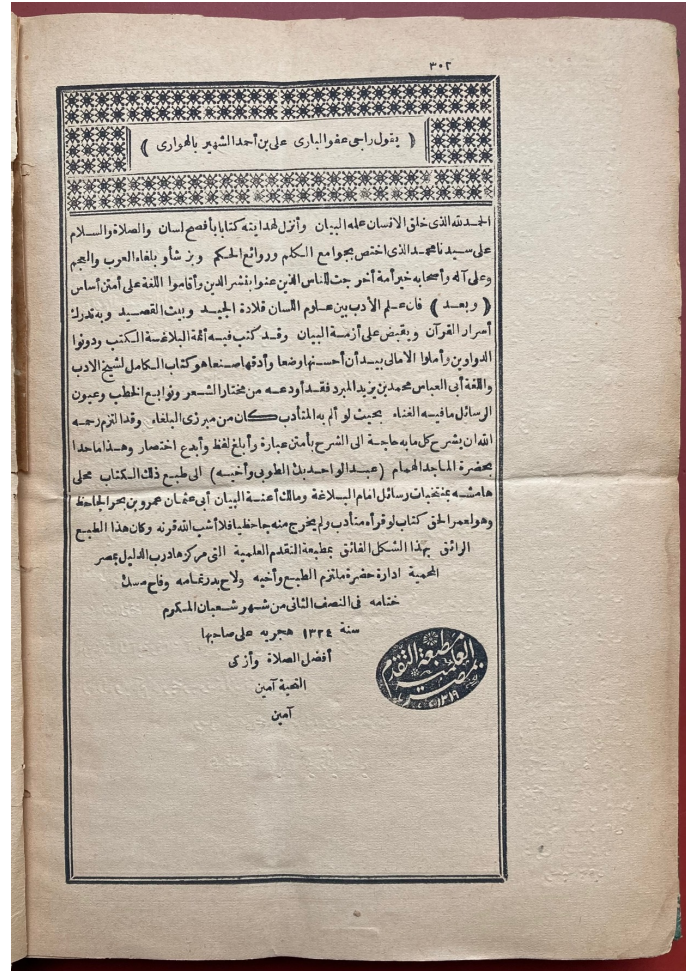 ٣٠٢
﴿ يقول راجى عفو البارى على بن أحمد الشهير بالهوارى ﴾
الحمد لله الذى خلق الانسان علمه البيان وأنزل لهدايته كتابا بأفصح لسان والصلاة والسلام
على سيدنا محمد الذى اختص بجوامع الكلم وروائع الحكم وبز شأو بلغاء العرب والعجم
وعلى آله وأصحابه خير أمة أخرجت للناس الذين عنوا بنشر الدين وأقاموا اللغة على أمتن أساس
﴿ وبعد ﴾ فان علم الأدب بين علوم اللسان قلادة الجيد وبيت القصيد وبه تدرك
أسرار القرآن ويقبض على أزمة البيان وقد كتب فيه أئمة البلاغة الكتب ودونوا
الدواوين وأملوا الامالى بيد أن أحسنها وضعا وأدقها صنعا هو كتاب الكامل لشيخ الادب
واللغة أبى العباس محمد بن يزيد المبرد فقد أودعه من مختار الشعر ونوابع الخطب وعيون
الرسائل ما فيه الغناء بحيث لو ألم به المتأدب كان من مبرزى البلغاء وقد التزم رحمه
الله ان يشرح كل ما به حاجة الى الشرح بأمتن عبارة وأبلغ لفظ وأبدع اختصار وهذا ما حدا
بحضرة الماجد الهمام (عبد الواحد بك الطوبى وأخيه) الى طبع ذلك الكتاب محلى
هامشه بمنتخبات رسائل امام البلاغة ومالك أعنة البيان أبى عثمان عمرو بن بحر الجاحظ
وهو لعمر الحق كتاب لو قرأه متأدب ولم يخرج منه جاحظيا فلا أشب الله قرنه وكان هذا الطبع
الرائق بهذا الشكل الفائق بمطبعة التقدم العلمية التى مركزها درب الدليل بمصر
المحمية ادارة حضرة ملتزم الطبع وأخيه ولاح بدر تمامه وفاح مسك
ختامه فى النصف الثانى من شهر شعبان المكرم
سنة ١٣٢٤ هجريه على صاحبها
أفضل الصلاة وأزكى
التحية آمين
آمين
مطبعة التقدم
العلمية
بمصر
١٣١٩